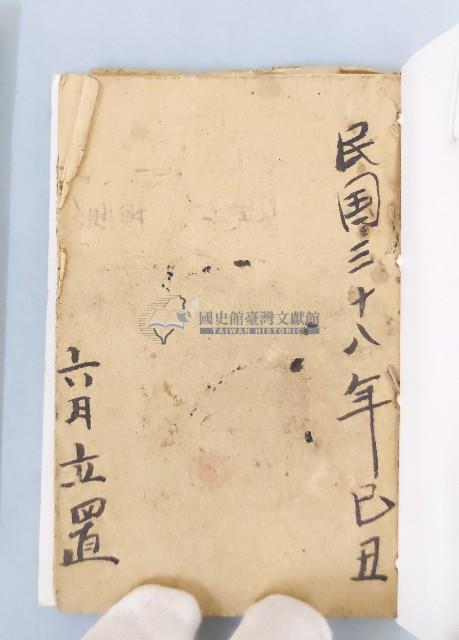 民国三十八年己丑
六月立置
國史館臺灣文獻館
TAIWAN HISTORICA